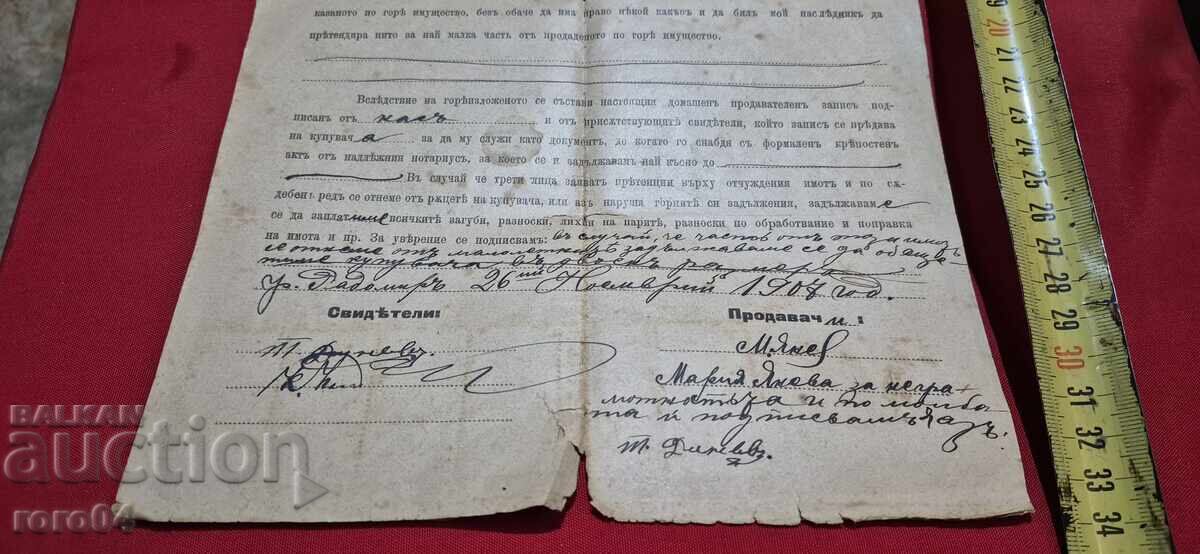 казаното по горѣ имущество, безъ обаче да има право нѣкой какъвъ и да билъ мой наслѣдникъ да
прѣтендира нито за най малка часть отъ продаденото по горѣ имущество.
Вслѣдствие на горѣизложеното се състави настоящия домашенъ продавателенъ записъ под-
писан отъ насъ и отъ присжтствующитѣ свидѣтели, който записъ се прѣдава
на купувач а за да му служи като документъ, до когато го снабдя съ формаленъ крѣпостенъ
актъ отъ надлѣжния нотариусъ, за което се и задължавамъ най късно до
Въ случай че трети лица заявятъ прѣтенции върху отчуждения имотъ и по сѫ-
дебенъ редъ се отнеме отъ рѫцетѣ на купувача, или азъ наруша горнитѣ си задължения, задължаваме
се да заплатиме всичкитѣ загуби, разноски, лихви на паритѣ, разноски по обработвание и поправка
на имота и пр. За увѣрение се подписвамъ: въ случай, че частьта отъ този имотъ
се отнеме отъ малолетнитѣ задължаваме се да обеща
тиме купувача въ двоенъ размѣръ
гр. Радомиръ 26 ий Ноемврий 1907 год.
Свидѣтели:
Продавач и:
Т. Диневъ
М. Янев
К.
Мария Янева за негра
мотностьта и по молба
та ѝ подписвамъ язъ:
Т. Диневъ
BALKAN
auction
roro04
20
21
22
23
24
25
26
27
28
29
30
31
32
33
34